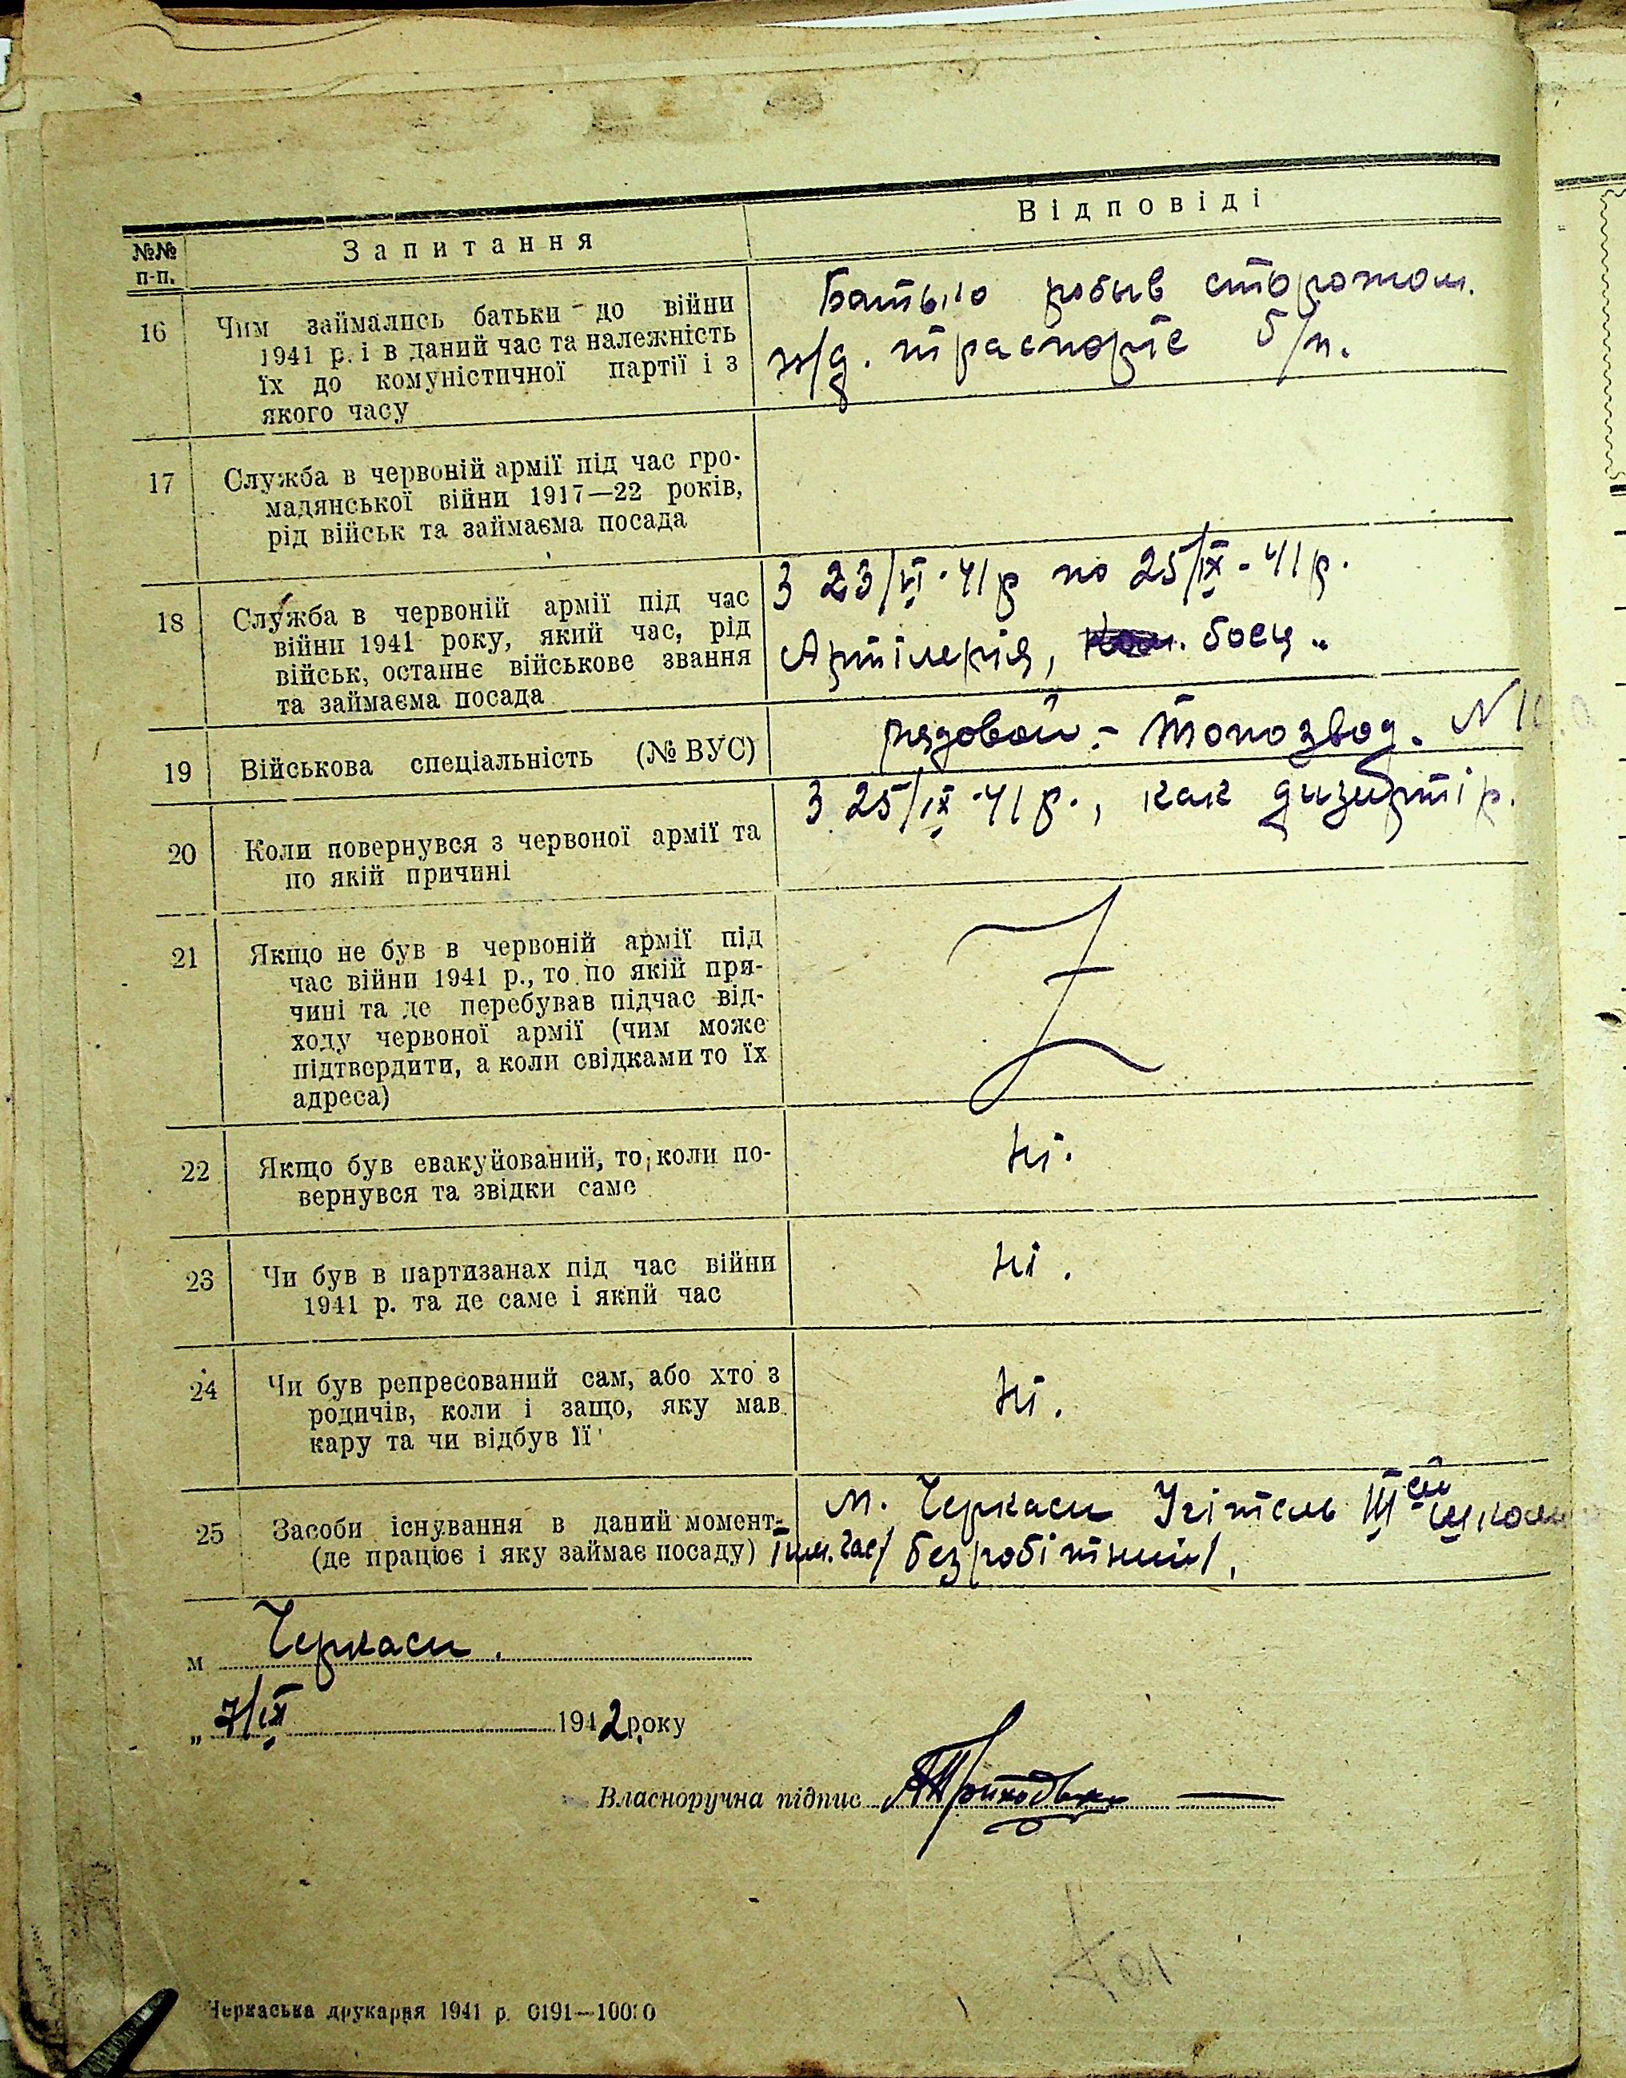 №№ п-п.
Запитання
Відповіді
16
Чим займались батьки до війни
1941 р. і в даний час та належність
їх до комуністичної партії і з
якого часу
Батько робыв сторожом.
ж/д. траспорте б/п.
17
Служба в червоній армії під час гро-
мадянської війни 1917—22 років,
рід військ та займаєма посада
18
Служба в червоній армії під час
війни 1941 року, який час, рід
військ, останнє військове звання
та займаєма посада
З 23/VI·41р по 25/IX-41р.
Артілерія, боец.
19
Військова спеціальність (№ ВУС)
рядовой - Топозвод. N 10
20
Коли повернувся з червоної армії та
по якій причині
З 25/IX·41р., как дизертір.
21
Якщо не був в червоній армії під
час війни 1941 р., то по якій при-
чині та де перебував підчас від-
ходу червоної армії (чим може
підтвердити, а коли свідками то їх
адреса)
22
Якщо був евакуйований, то коли по-
вернувся та звідки саме
Ні.
23
Чи був в партизанах під час війни
1941 р. та де саме і який час
Ні.
24
Чи був репресований сам, або хто з
родичів, коли і защо, яку мав
кару та чи відбув її
Ні.
25
Засоби існування в даний момент
(де працює і яку займає посаду)
м. Черкаси Учітель III ей школи
час/ безробітний/.
м Черкаси.
„ 7/IX 1942 року
Власноручна підпис АПриходько
Черкаська друкарня 1941 р. 0191—10000